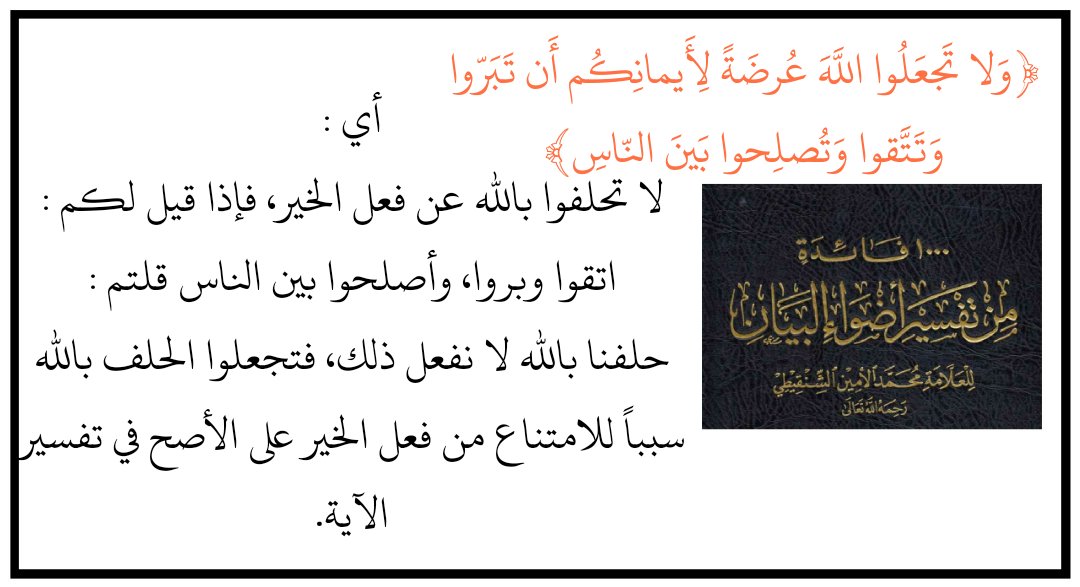 ﴿وَلا تَجعَلُوا اللَّهَ عُرضَةً لِأَيمانِكُم أَن تَبَرّوا
وَتَتَّقوا وَتُصلِحوا بَينَ النّاسِ﴾
أي :
لا تحلفوا بالله عن فعل الخير، فإذا قيل لكم :
اتقوا وبروا، وأصلحوا بين الناس قلتم :
حلفنا بالله لا نفعل ذلك، فتجعلوا الحلف بالله
سبباً للامتناع من فعل الخير على الأصح في تفسير
الآية.
١٠٠٠ فَائِدَةٍ
مِنْ تَفْسِيرِ أَضْوَاءِ البَيَانِ
لِلعَلَّامَةِ مُحَمَّد الأَمِين الشِّنْقِيطِيّ
رَحِمَهُ اللَّهُ تَعَالَى